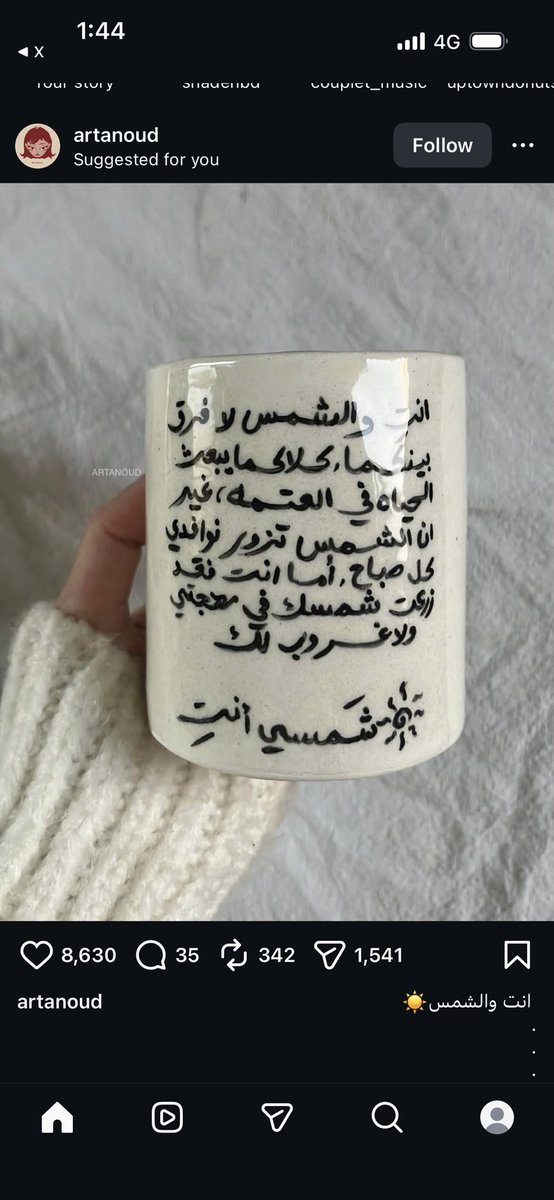 1:44
4G
X
Your story
shadenbd
couplet_music
uptowndonuts
artanoud
Suggested for you
Follow
ARTANOUD
انتِ والشمس لا فرق
بينكما، كلاكما يبعث
الحياه في العتمه، غير
ان الشمس تزور نوافذي
كل صباح، أما انت فقد
زرعت شمسك في مهجتي
ولا غروب لك
شَمسي أنتِ
8,630
35
342
1,541
artanoud
انت والشمس☀️
.
.
.